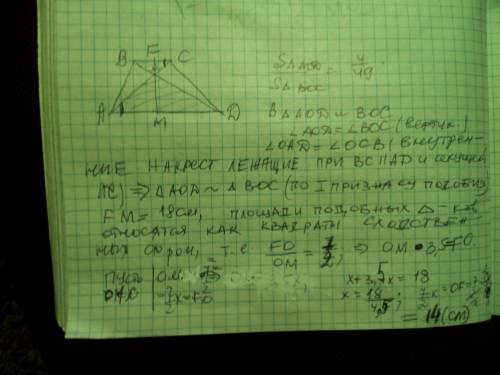 B E C
A M D
S△AOD / S△BOC = 4/49.
В △AOD и BOC
∠AOD = ∠BOC (вертик.)
∠OAD = ∠OCB (внутрен-
ние накрест лежащие при BC ∥ AD и секущей
AC) ⇒ △AOD ~ △BOC (по I признаку подобия)
EM = 18 см, площади подобных △-ков
относятся как квадраты сходствен-
ных сторон, т.е. FO/OM = /2, ⇒ OM · 3,5 = FO.
Пусть
x + 3,5x = 18
x = 18/4,5; 7/2 x = OF =
= 14 (см)